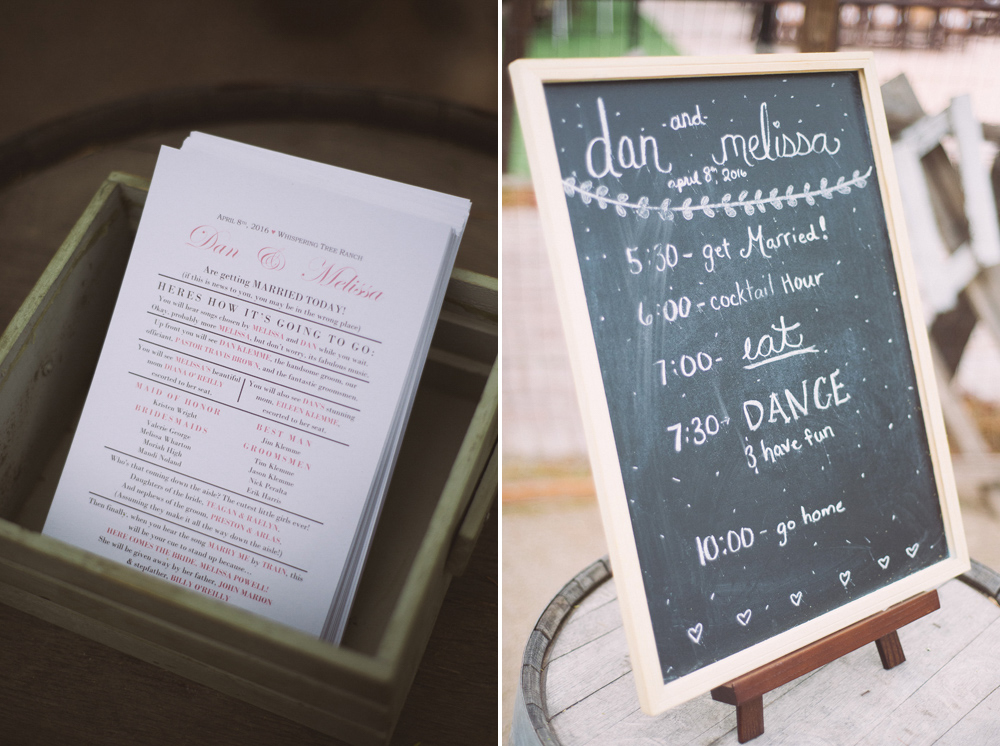 APRIL 8TH, 2016 ♥ WHISPERING TREE RANCH
Dan & Melissa
Are getting MARRIED TODAY!
(if this is news to you, you may be in the wrong place)
HERES HOW IT'S GOING TO GO:
You will hear songs chosen by MELISSA and DAN while you wait.
Okay, probably more MELISSA, but don't worry, its fabulous music.
Up front you will see DAN KLEMME, the handsome groom, our
officiant, PASTOR TRAVIS BROWN, and the fantastic groomsmen.
You will see MELISSA'S beautiful
mom DIANA O'REILLY
escorted to her seat.
You will also see DAN'S stunning
mom, EILEEN KLEMME,
escorted to her seat.
MAID OF HONOR
Kristen Wright
BRIDESMAIDS
Valerie George
Melissa Wharton
Moriah High
Mandi Noland
BEST MAN
Jim Klemme
GROOMSMEN
Tim Klemme
Jason Klemme
Nick Peralta
Erik Harris
Who's that coming down the aisle? The cutest little girls ever!
Daughters of the bride, TEAGAN & RAELYN.
And nephews of the groom, PRESTON & ARLAS.
(Assuming they make it all the way down the aisle!)
Then finally, when you hear the song MARRY ME by TRAIN, this
will be your cue to stand up because...
HERE COMES THE BRIDE, MELISSA POWELL!
She will be given away by her father, JOHN MARION
& stepfather, BILLY O'REILLY
dan -and- melissa
april 8th, 2016
5:30 - get Married!
6:00 - cocktail Hour
7:00 - eat
7:30 - DANCE
& have fun
10:00 - go home